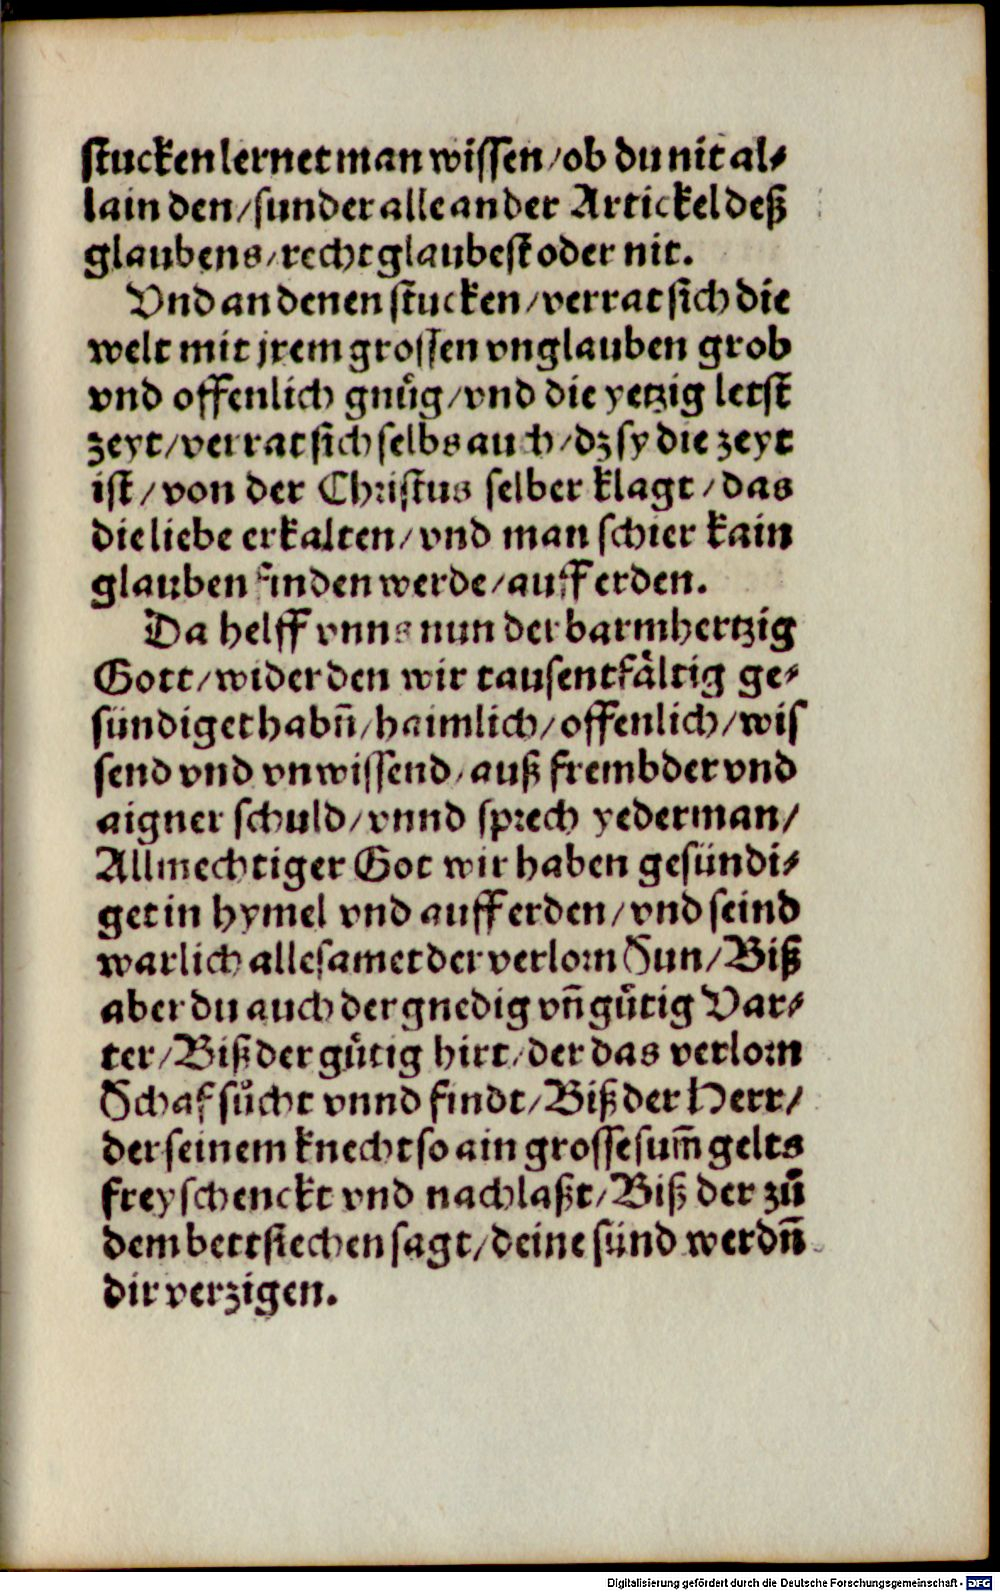 stucken lernet man wissen/ob du nit al⸗
lain den/sunder alle ander Artickel deß
glaubens/recht glaubest oder nit.
Vnd an denen stucken/verrat sich die
welt mit jrem grossen vnglauben grob
vnd offenlich gnuͦg/vnd die yetzig letst
zeyt/verrat sich selbs auch/dz sy die zeyt
ist/von der Christus selber klagt/das
die liebe erkalten/vnd man schier kain
glauben finden werde/auff erden.
Da helff vnns nun der barmhertzig
Gott/wider den wir tausentfåltig ge⸗
sündiget habn̄/haimlich/offenlich/wis
send vnd vnwissend/auß frembder vnd
aigner schuld/vnnd sprech yederman/
Allmechtiger Got wir haben gesündi⸗
get in hymel vnd auff erden/vnd seind
warlich allesamet der verlorn Sun/Biß
aber du auch der gnedig vn̄ guͤtig Vat⸗
ter/Biß der guͤtig hirt/der das verlorn
Schaf suͦcht vnnd findt/Biß der Herr/
der seinem knecht so ain grosse sum̄ gelts
frey schenckt vnd nachlaßt/Biß der zuͦ
dem bettsiechen sagt/deine sünd werdn̄
dir verzigen.
Digitalisierung gefördert durch die Deutsche Forschungsgemeinschaft - DFG